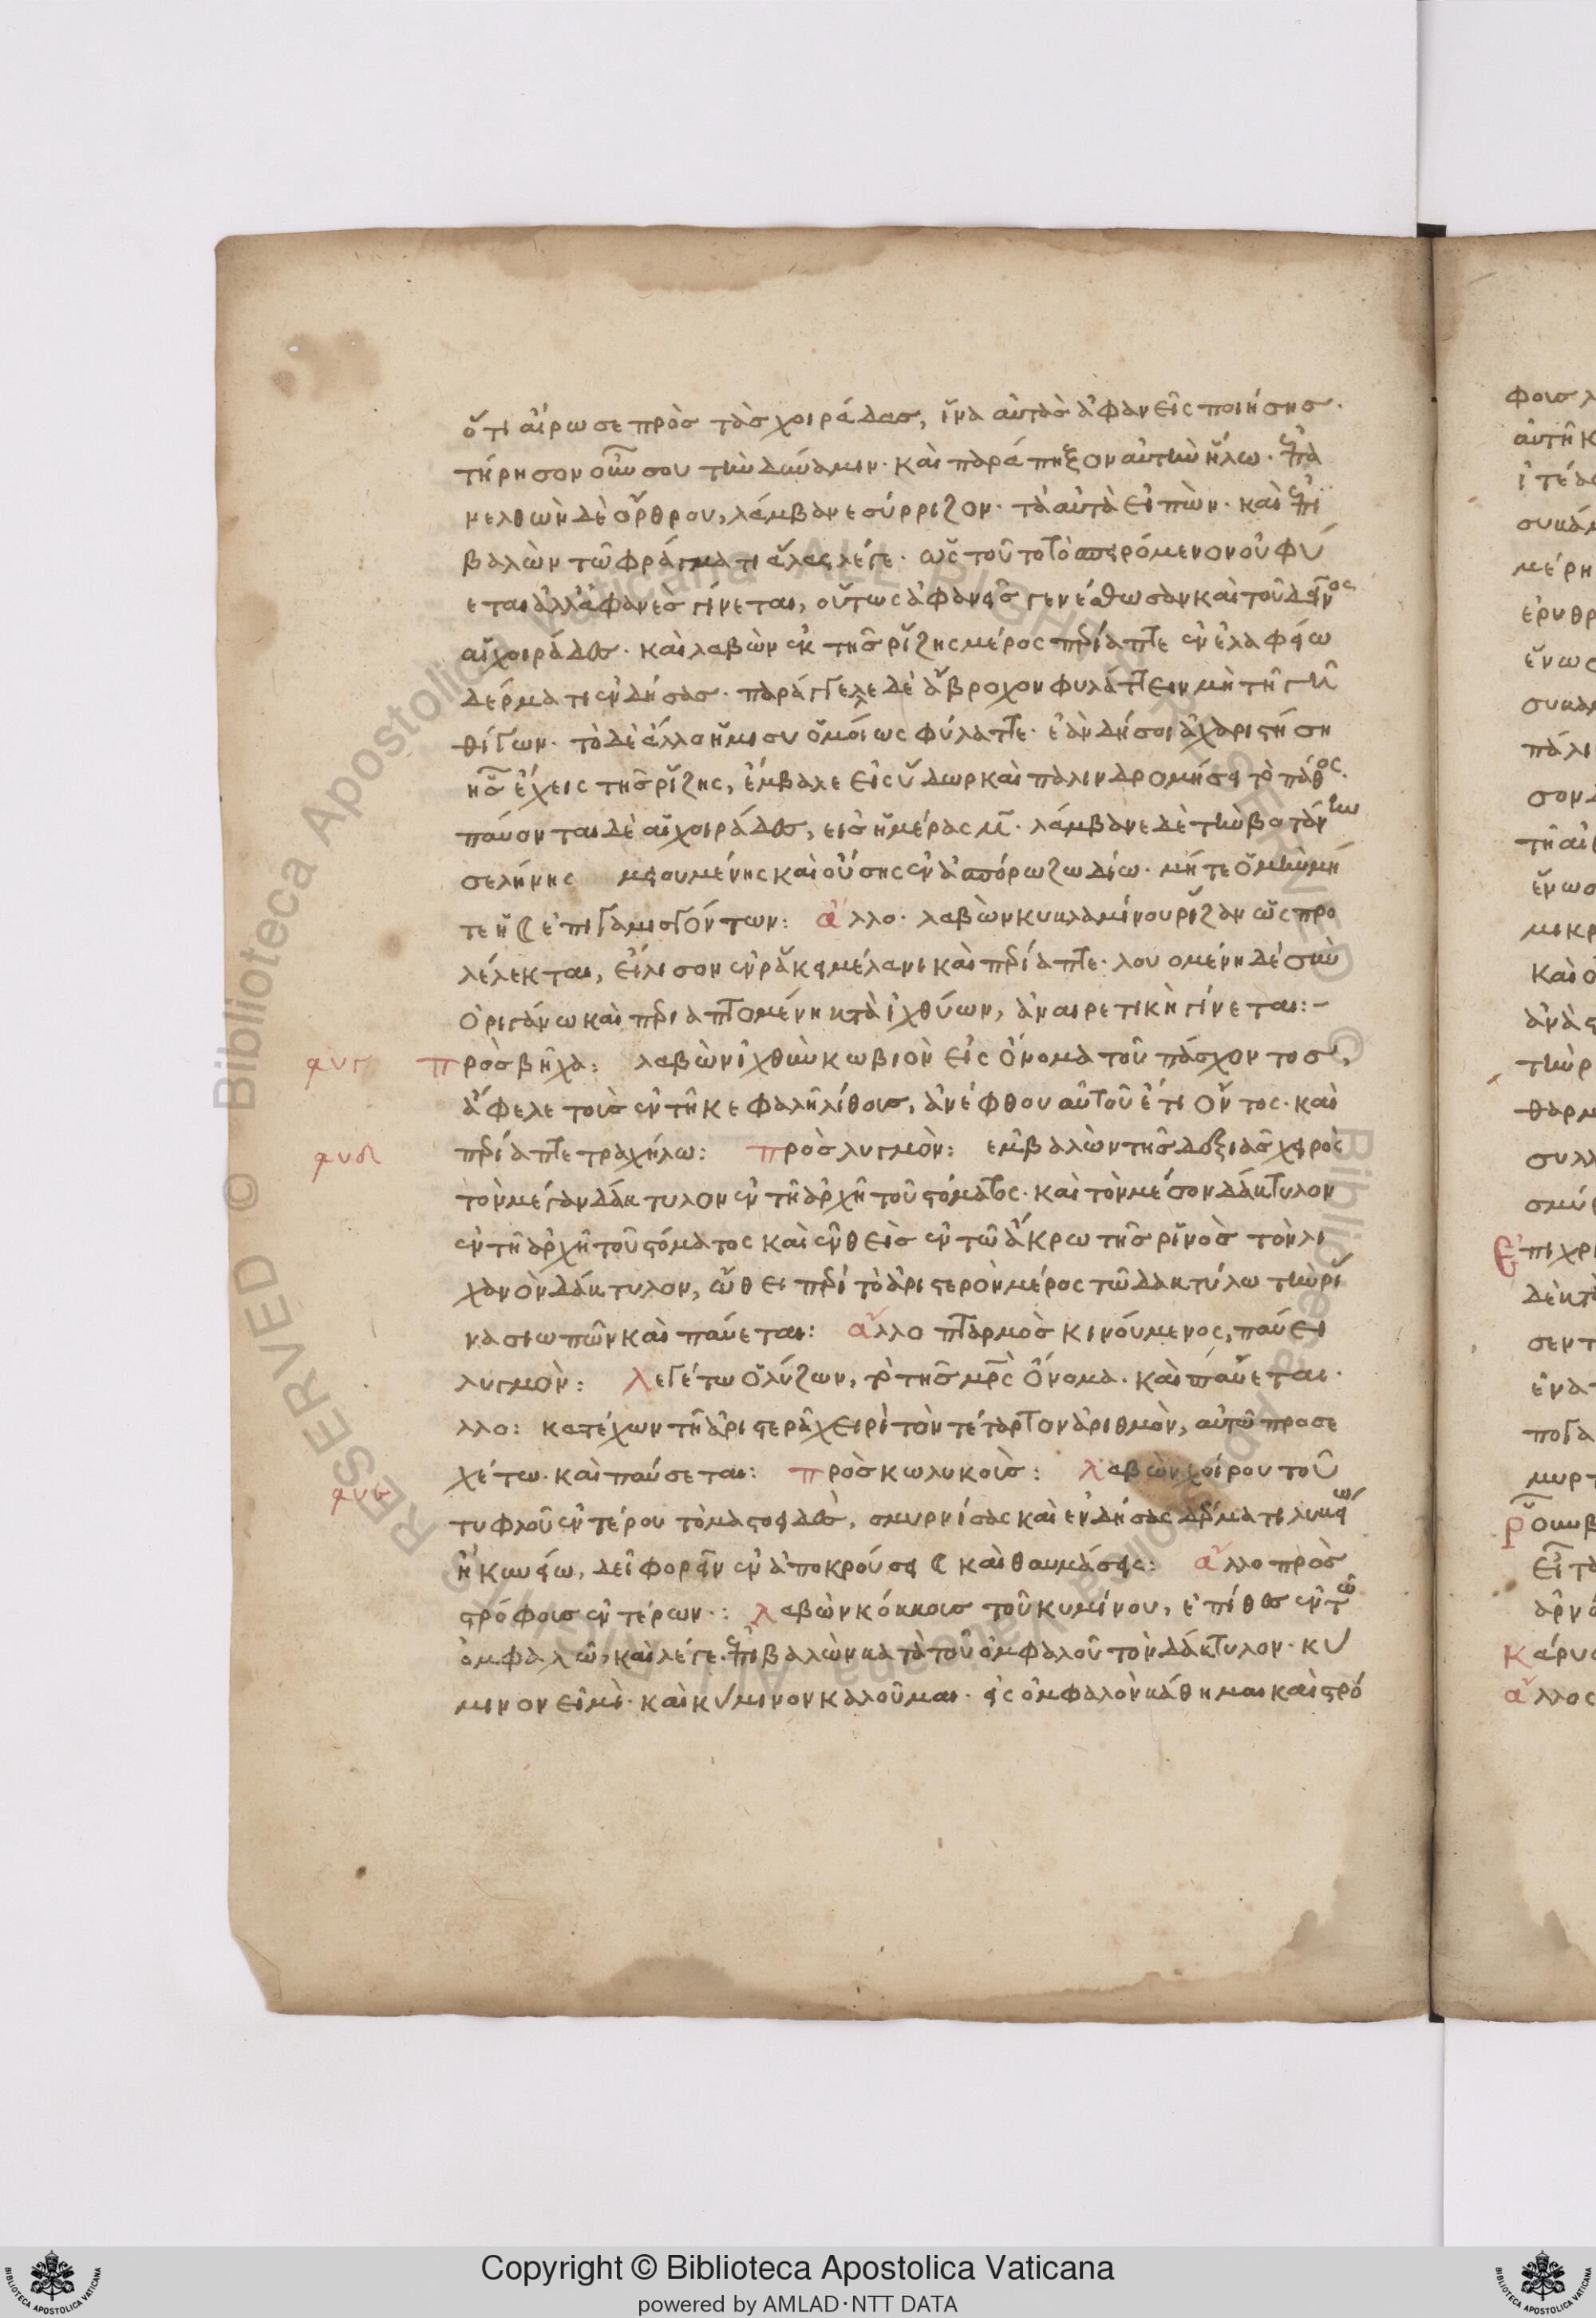 ὅτι αἴρω σε πρὸσ τὰσ χοιράδασ, ἵνα αὐτὰσ ἀφανεῖς ποιήσησ.
τήρησον οὖν σου τὴν δύναμιν. καὶ παράπηξον αὐτὴν ἥλω. ἐπα
νελθὼν δὲ ὄρθρου, λάμβανε σύρριζον. τὰ αὐτὰ εἰπὼν. καὶ ἐπι
βαλὼν τῶ φράγματι ἅλας λέγε. ὡς τοῦτο τὸ σπειρόμενον οὐ φύ
εται ἀλλἀφανὲσ γίνεται, οὕτως ἀφανεῖσ γενέσθωσαν καὶ τοῦ δεῖνος
αἱ χοιράδες. καὶ λαβὼν ἐκ τῆσ ρίζης μέρος περίαπτε ἐν ἐλαφείω
δέρματι ἐνδήσασ. παράγγελε δὲ ἄβροχον φυλάττειν μὴ τῆ γῆ
θίγων. τὸ δὲ ἄλλο ἥμισυ ὁμοίως φύλαττε. ἐὰν δή σοι ἀχαριστήση
ἧσ ἔχεις τῆσ ρίζης, ἔμβαλε εἰς ὕδωρ καὶ παλινδρομήσει τὸ πάθος.
παύονται δὲ αἱ χοιράδες, εισ ἡμέρας μ. λάμβανε δὲ τὴν βοτάνην
σελήνης μειουμένης καὶ οὔσης ἐν ἀπόρω ζωδίω. μήτε ὁμὴν μή
τε ἡ ☾ ἐπι γάμισγόντων: ἄλλο. λαβὼν κυκλαμίνου ρίζαν ὡς προ
λέλεκται, εἵλισον ἐν ράκει μέλανι καὶ περίαπτε. λουομένη δὲ σὺν
ὀριγάνω καὶ περιαπτομένη κατὰ ἰχθύων, ἀναιρετικὴ γίνεται:–
φυγ πρὸσ βῆχα: λαβὼν ἰχθὺν κωβιὸν εἰς ὄνομα τοῦ πάσχοντοσ,
ἄφελε τοὺσ ἐν τῆ κεφαλῆ λίθουσ, ἀνέφθου αὐτοῦ ἔτι ὄντος. καὶ
φυδ περίαπτε τραχήλω: πρὸσ λυγμὸν: εμβαλὼν τῆσ δεξιᾶσ χειρὸς
τὸν μέγαν δάκτυλον ἐν τῆ ἀρχῆ τοῦ στόματος. καὶ τὸν μέσον δάκτυλον
ἐν τῆ ἀρχῆ τοῦ στόματος καὶ ἐνθεὶσ ἐν τῶ ἄκρω τῆσ ρινὸσ τὸν λι
χανὸν δάκτυλον, ὤθει περί τὸ ἀριστερὸν μέρος τῶ δακτύλω τὴν ρί
να σιωπῶν καὶ παύεται: ἄλλο πταρμὸσ κινούμενος, παύει
λυγμὸν: λεγέτω ὁ λύζων, τὸ τῆσ μρς ὄνομα. καὶ παύεται.
λλο: κατέχων τῆ ἀριστερᾶ χειρὶ τὸν τέταρτον ἀριθμὸν, αὐτῶ προσε
χέτω. καὶ παύσεται: πρὸσ κωλικοὺσ: λαβὼν χοίρου τοῦ
φυε τυφλοῦ ἐντέρου τὸ μαστοειδὲς, σμυρνίσας καὶ ἐνδήσας δέρματι λυκείω
ἢ κυνείω, δεῖ φορεῖν ἐν ἀποκρούσει ☾ καὶ θαυμάσεις: ἄλλο πρὸσ
στρόφουσ ἐντέρων: λαβὼν κόκκουσ τοῦ κυμίνου, ἐπίθες ἐν τῶ
ὀμφαλῶ, καὶ λέγε. ἐπιβαλὼν κατὰ τοῦ ὀμφαλοῦ τὸν δάκτυλον. κύ
μινον εἰμὶ. καὶ κύμινον καλοῦμαι. εἰς ὀμφαλὸν κάθημαι καὶ στρό
Copyright © Biblioteca Apostolica Vaticana
powered by AMLAD·NTT DATA